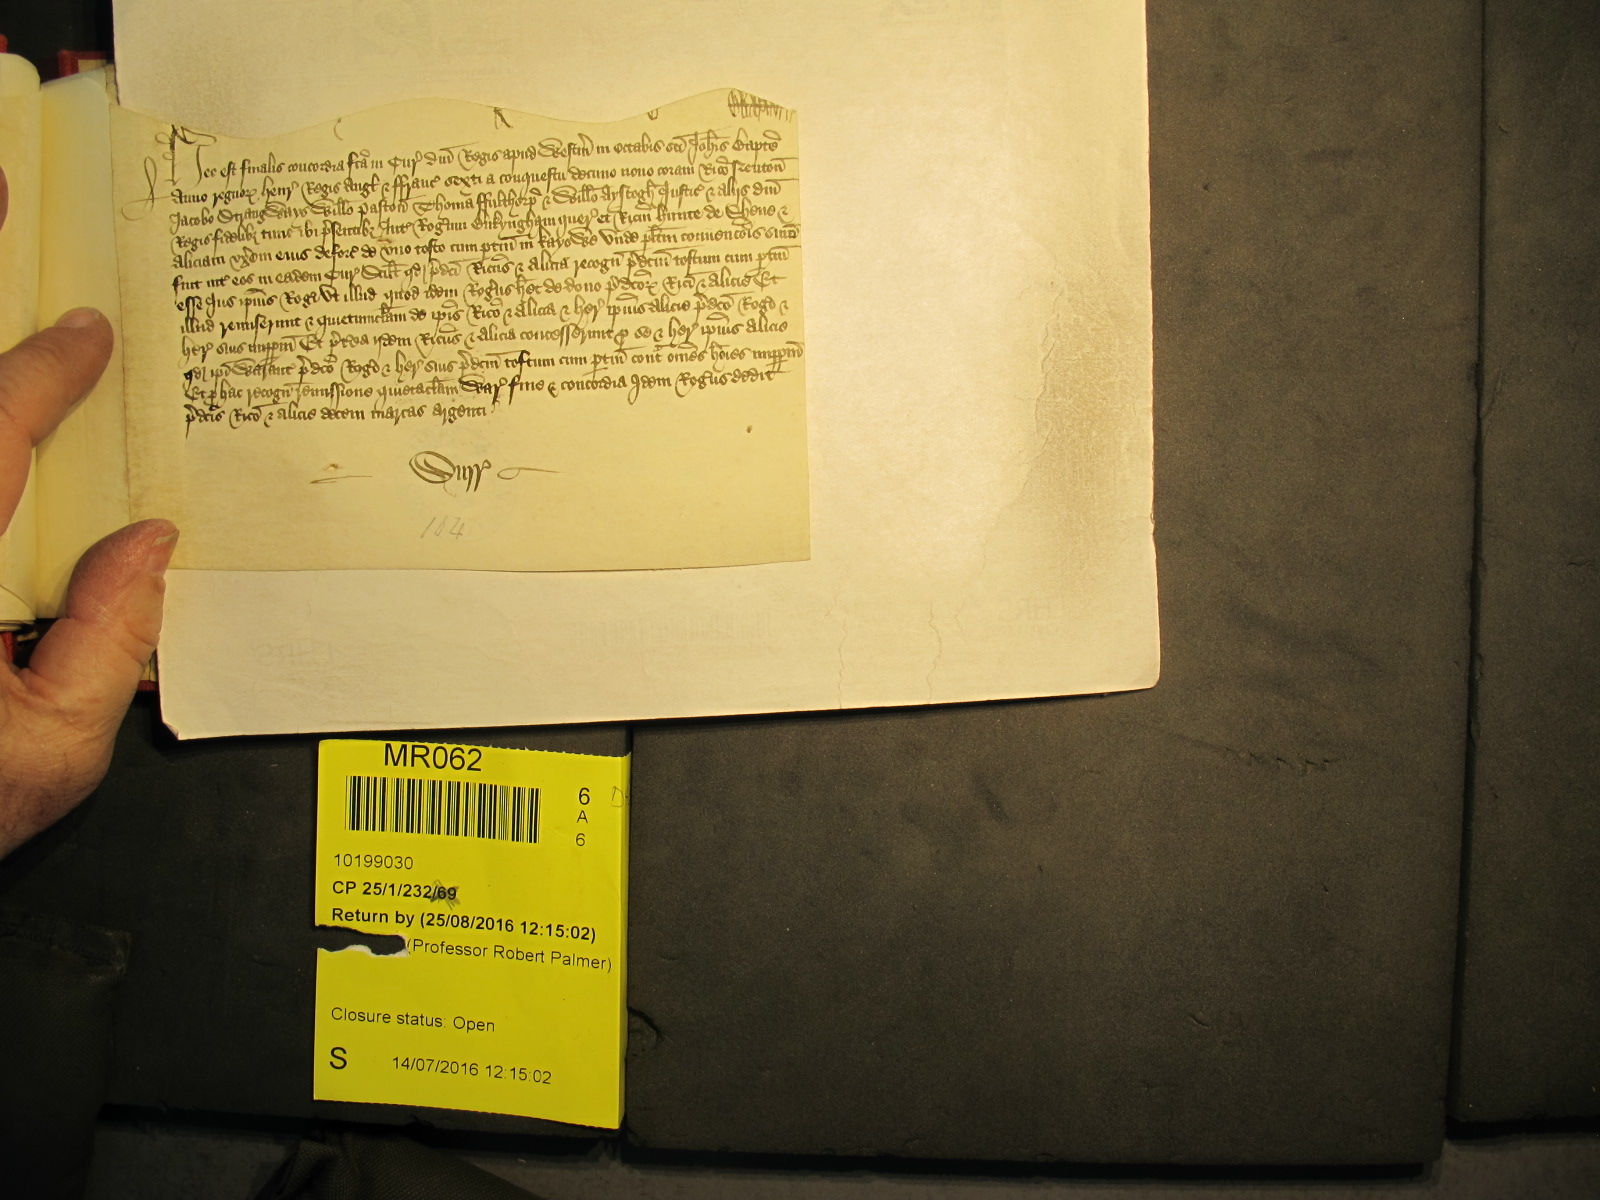 Hec est finalis concordia fca in Cur dni Regis apud Westm in octabis sci Johis Bapte
Anno regnor Henr Regis Angl & ffranc sexti a conquestu decimo nono coram Rico Neuton
Jacobo Strangways Willo Paston Thoma ffulthorp & Willo Ayscogh Justic & aliis dni
Regis fidelibz tunc ibi presentibz Int Rogum quer et Ricm Hunte de Shene &
Aliciam uxem eius deforc de uno tofto cum ptin in Unde plitm convencois sum
fuit int eos in eadem Cur Scilt qd pdci Ricus & Alicia recogn pdcm toftum cum ptin
esse Jus ipius Rogi Ut illud quod idem Rogus het de dono pdcor Rici & Alicie Et
illud remiserunt & quietumclam de ipis Rico & Alicia & her ipius Alicie pdco Rogo &
her suis imppm Et pterea idem Ricus & Alicia concesserunt p se & her ipius Alicie
qd ipi Warant pdco Rogo & her suis pdcm toftum cum ptin cont omes hoies imppm
Et p hac recogn remissione quietaclam War fine & concordia idem Rogus dedit
pdcis Rico & Alicie decem marcas argenti
Surr
104
MR062
6
A
6
10199030
CP 25/1/232/69
Return by (25/08/2016 12:15:02)
(Professor Robert Palmer)
Closure status: Open
S 14/07/2016 12:15:02